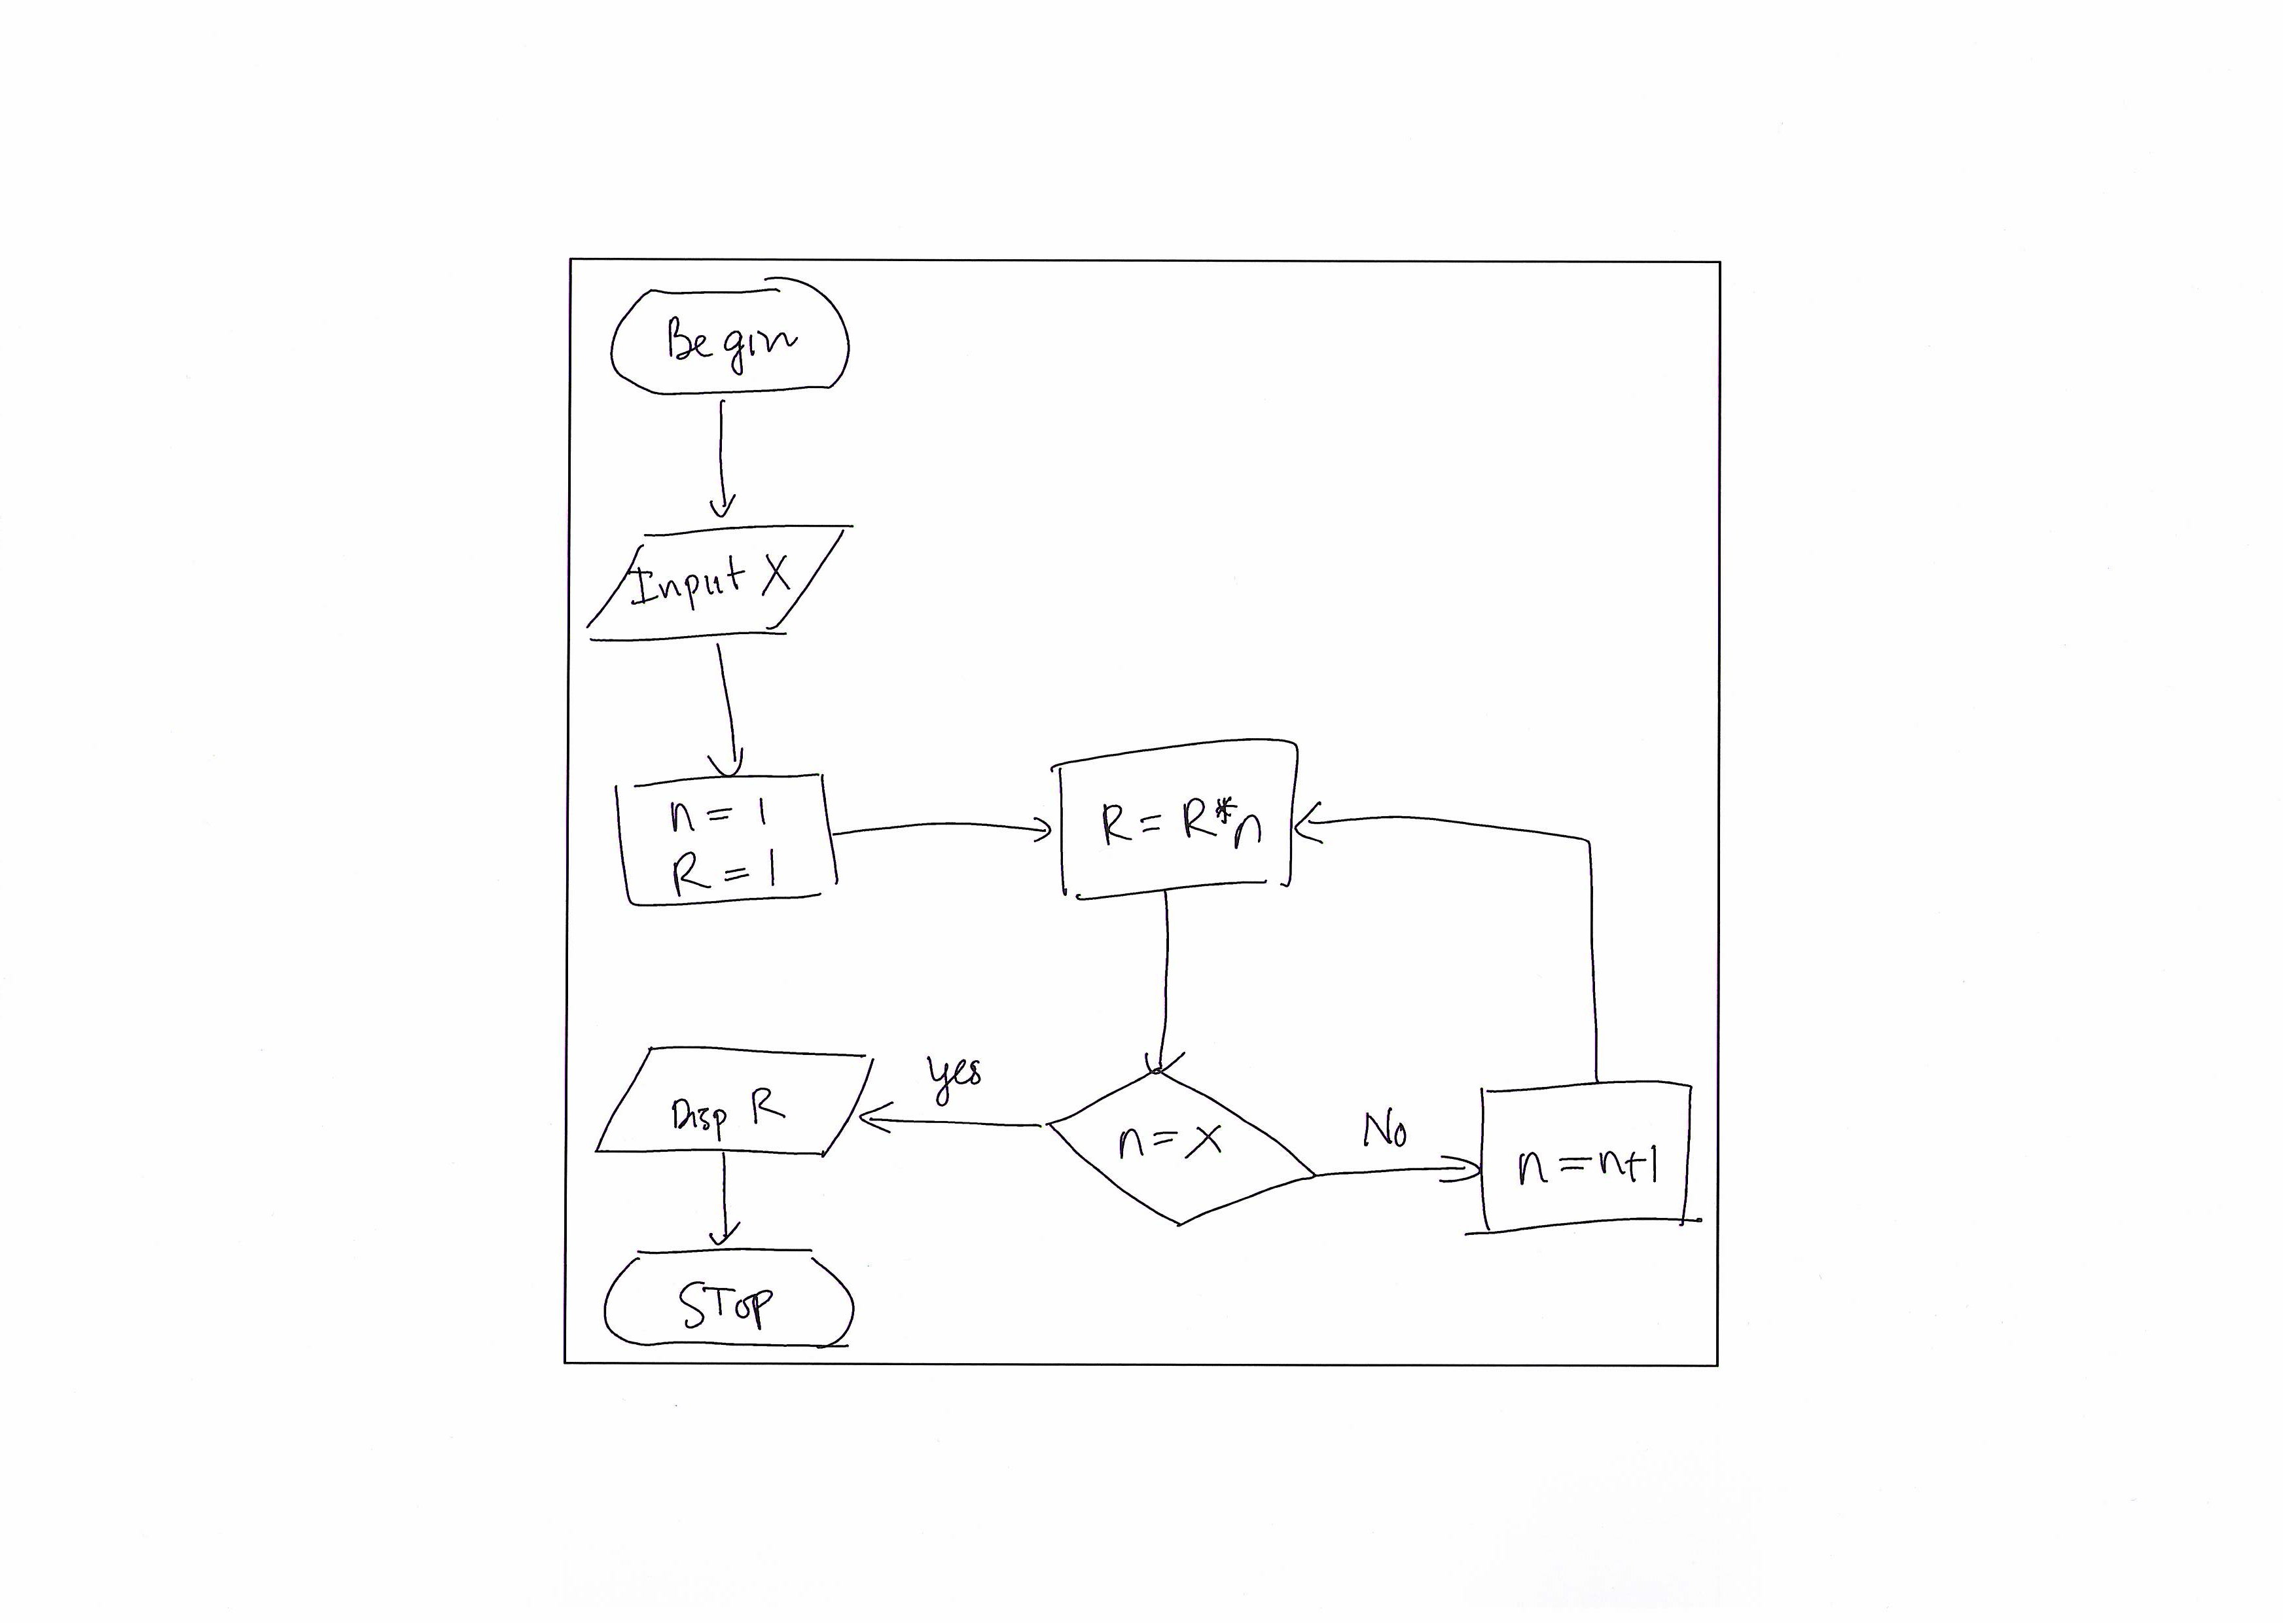 Begin
Input X
n = 1
R = 1
R = R*n
n = x
yes
No
n = n+1
Disp R
STOP